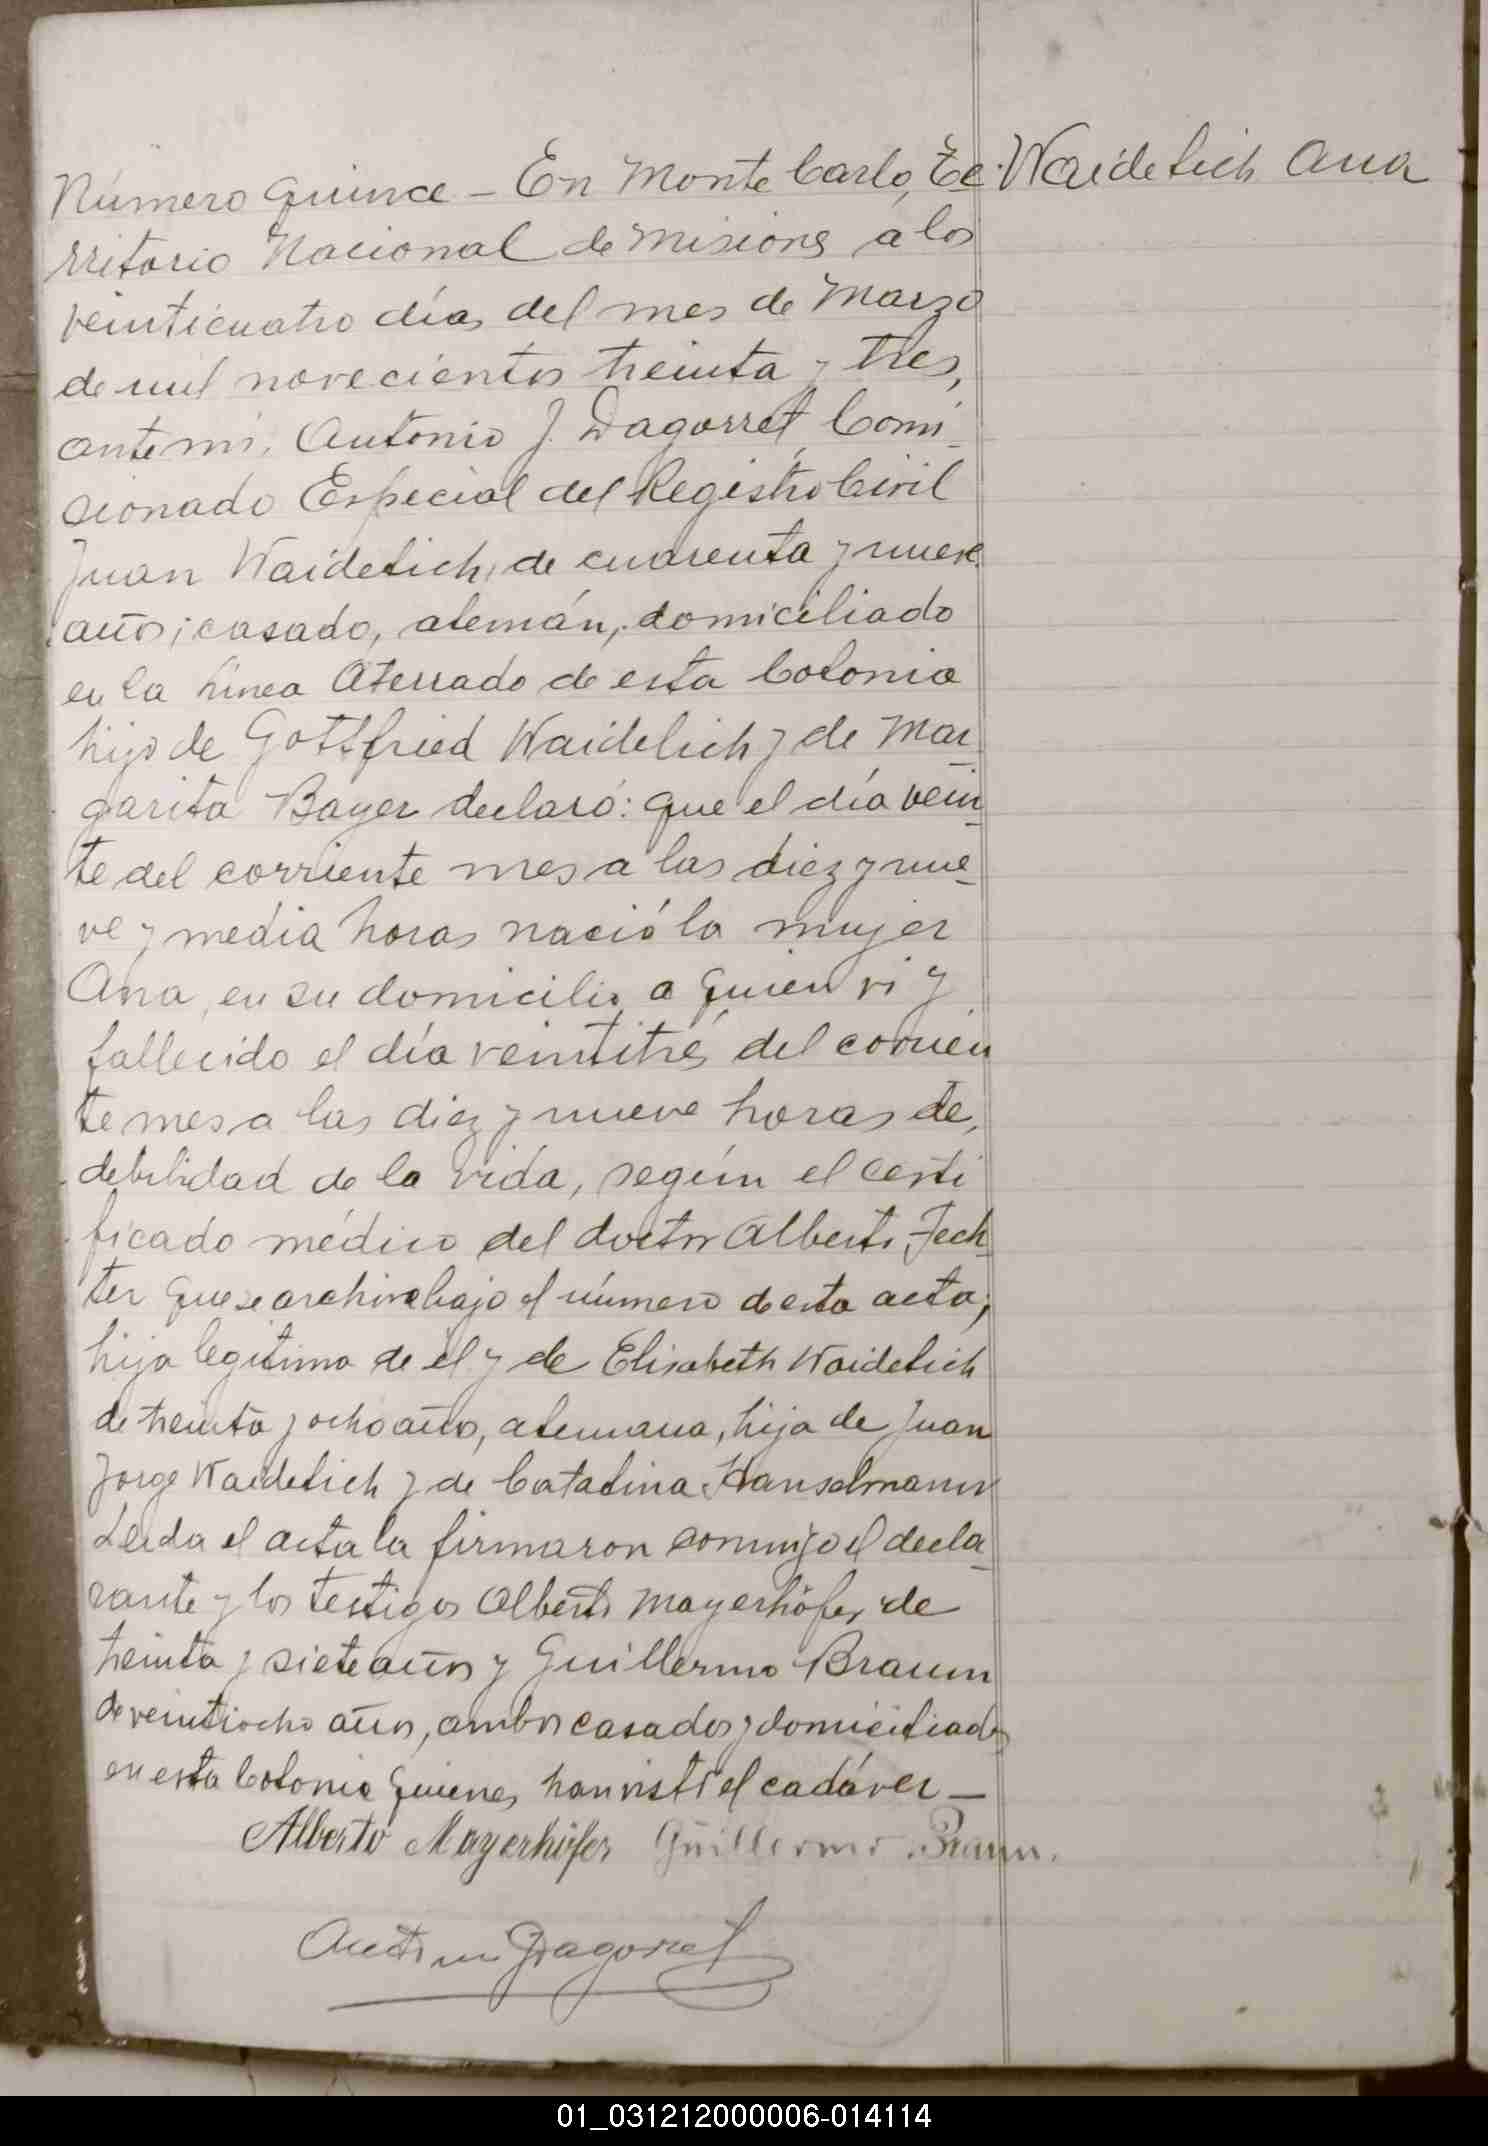 Número quince – En Monte Carlo, Te
Waidelich Ana
rritorio Nacional de Misiones a los
veinticuatro días del mes de Marzo
de mil novecientos treinta y tres,
ante mi, Antonio J. Dagorret, Comi
sionado Especial del Registro Civil
Juan Waidelich, de cuarenta y nueve
años, casado, alemán, domiciliado
en la línea Aterrado de esta Colonia
hijo de Gottfried Waidelich y de Mar-
garita Bayer declaró: que el día vein-
te del corriente mes a las diez y nue-
ve y media horas nació la mujer
Ana, en su domicilio, a quien vi y
fallecido el día veintitrés del corrien
te mes a las diez y nueve horas de,
debilidad de la vida, según el certi
ficado médico del doctor Alberto Fech-
ter que se archiva bajo el número de esta acta;
hija legítima de él y de Elisabeth Waidelich
de treinta y ocho años, alemana, hija de Juan
Jorge Waidelich y de Catalina Hanselmann
Leída el acta la firmaron conmigo el decla-
rante y los testigos Alberto Mayerhöfer, de
treinta y siete años y Guillermo Braun
de veintiocho años, ambos casados y domiciliados
en esta Colonia quienes han visto el cadáver –
Alberto Mayerhöfer Guillermo Braun.
Antonio J Dagorret
01_031212000006-014114